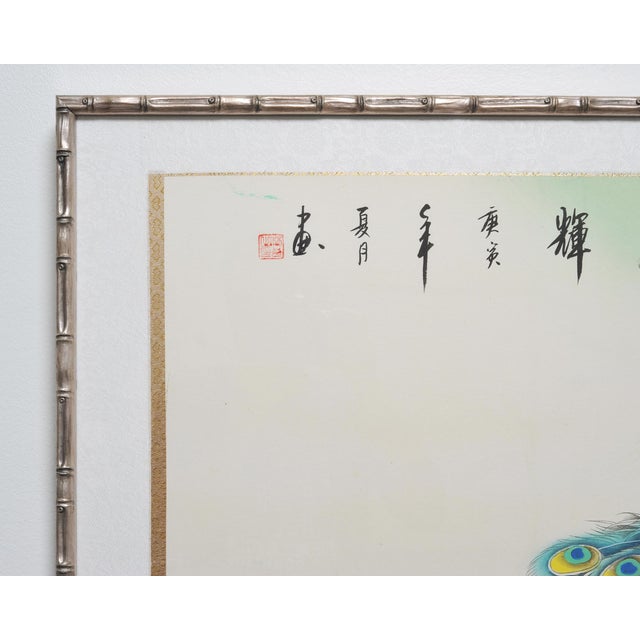 輝
庚寅
年
夏月
画